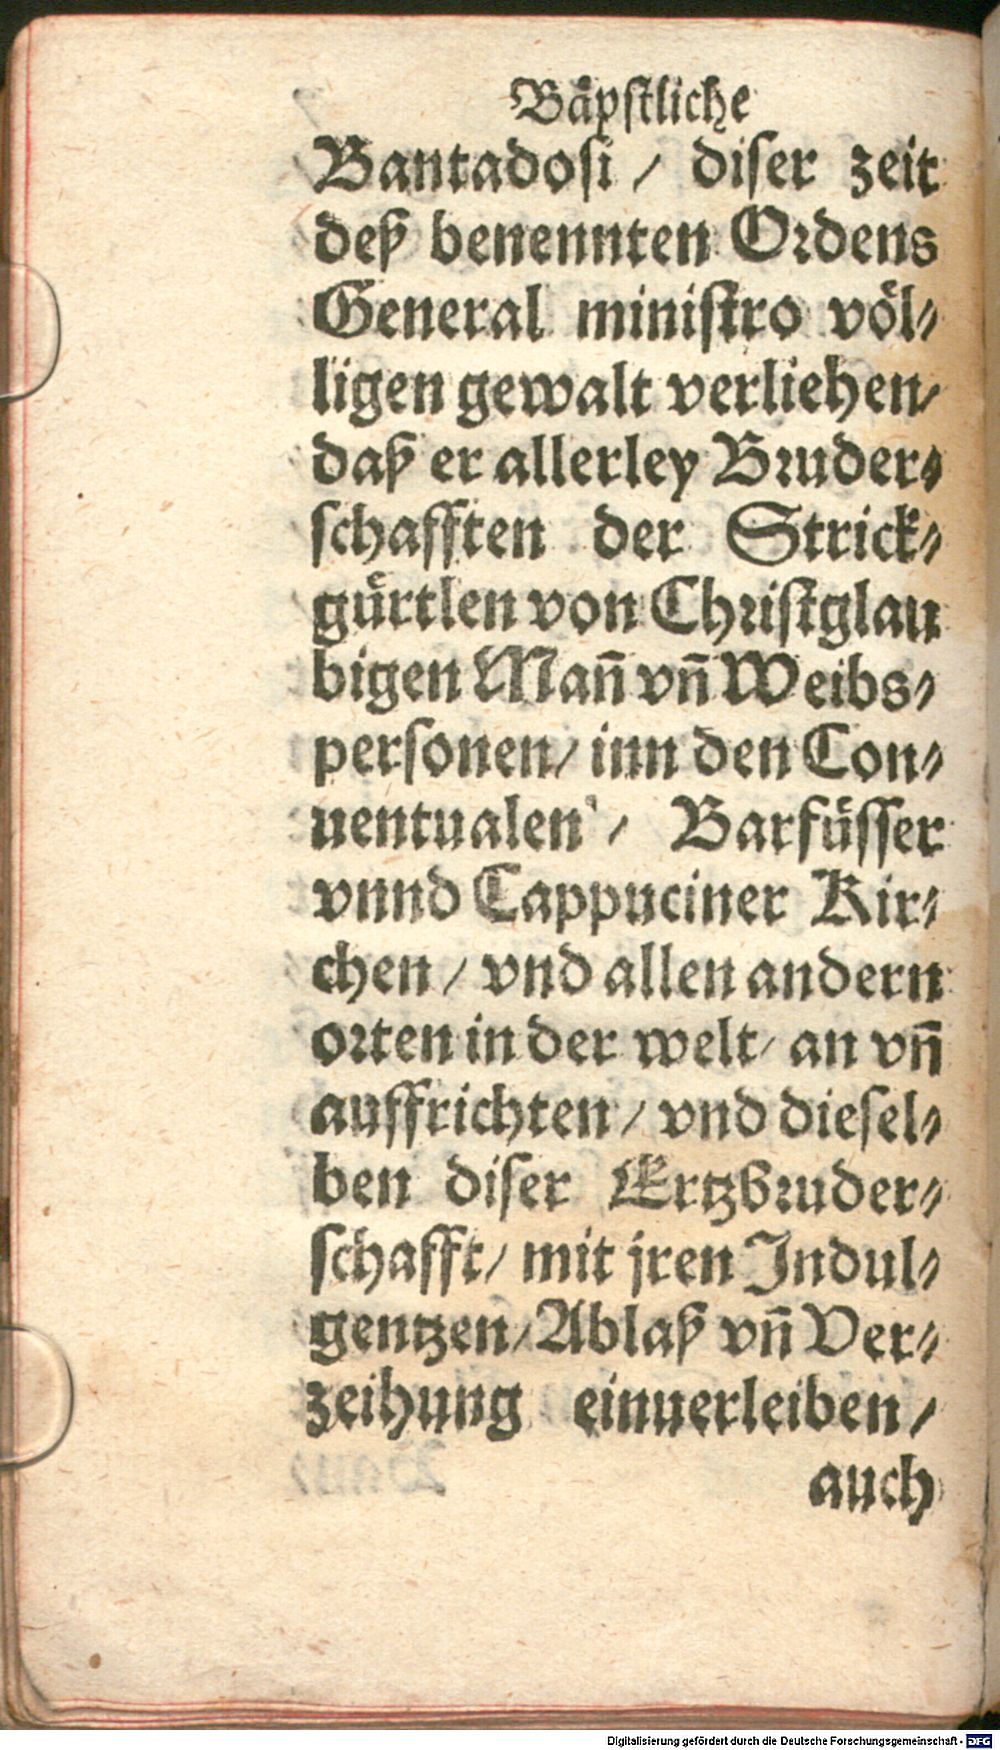 Baͤpſtliche
Bantadoſi / diſer zeit
deß benennten Ordens
General miniſtro voͤl⸗
ligen gewalt verliehen/
daß er allerley Bruder⸗
ſchafften der Strick⸗
guͤrtlen von Chriſtglau
bigen Mañ vñ Weibs⸗
perſonen/ inn den Con⸗
uentualen / Barfuͤſſer
vnnd Cappuciner Kir⸗
chen / vnd allen andern
orten in der welt/ an vñ
auffrichten / vnd dieſel⸗
ben diſer Ertzbruder⸗
ſchafft/ mit jren Indul⸗
gentzen/ Ablaß vñ Ver⸗
zeihung einuerleiben /
auch
Digitalisierung gefördert durch die Deutsche Forschungsgemeinschaft - DFG